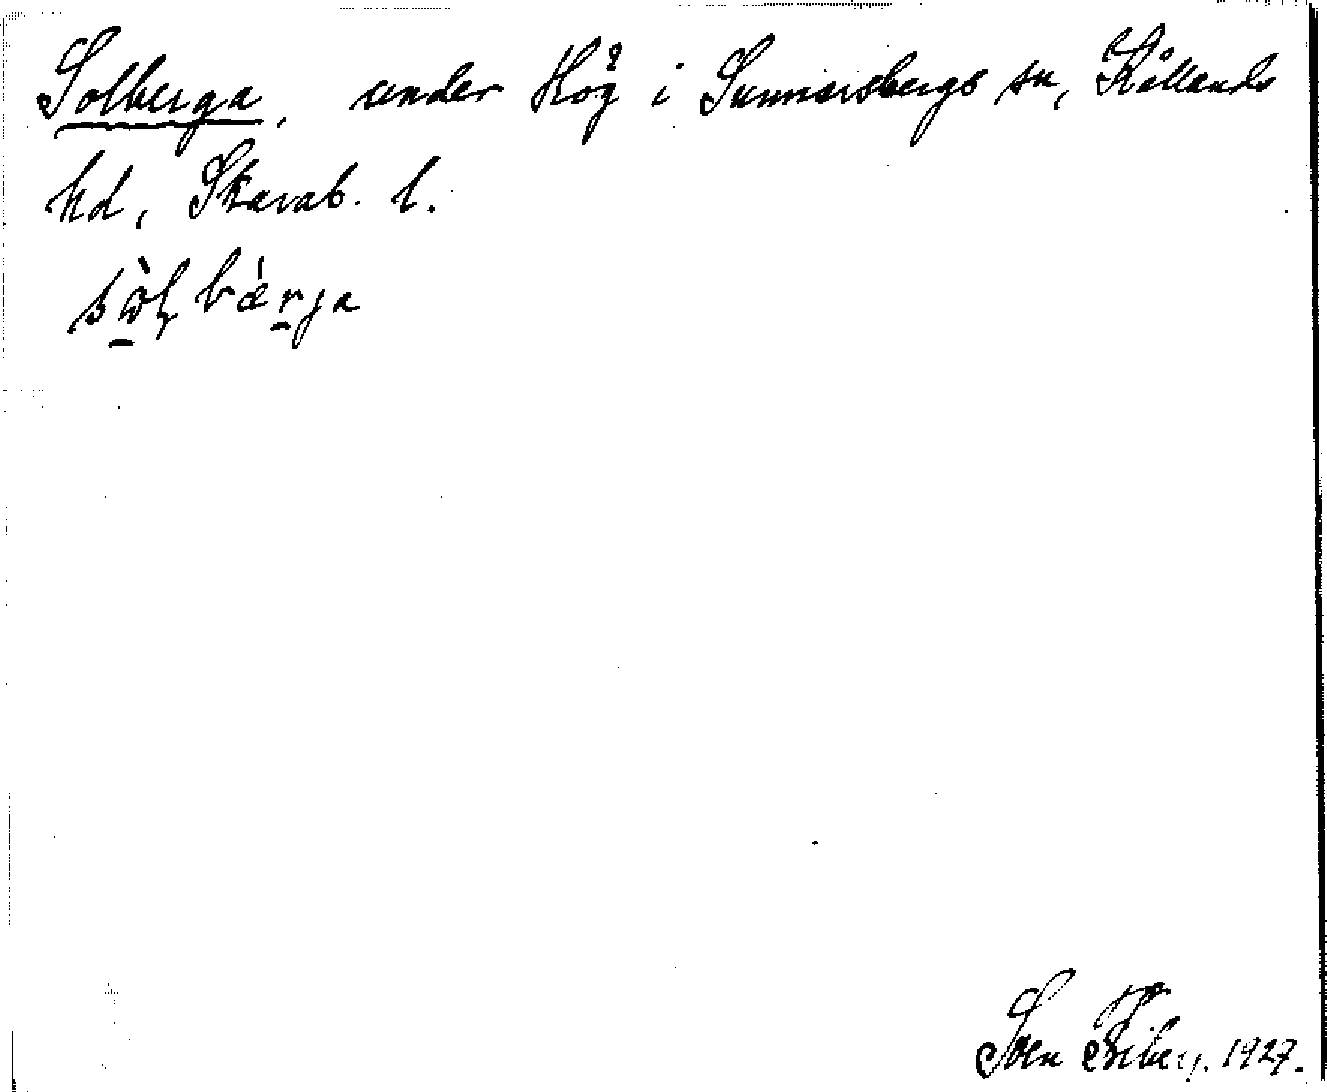 Solberga, under Hög i Sunnersbergs sn, Kållands
hd, Skarab. l.
sòlbǽrja
Sven Friberg. 1927.